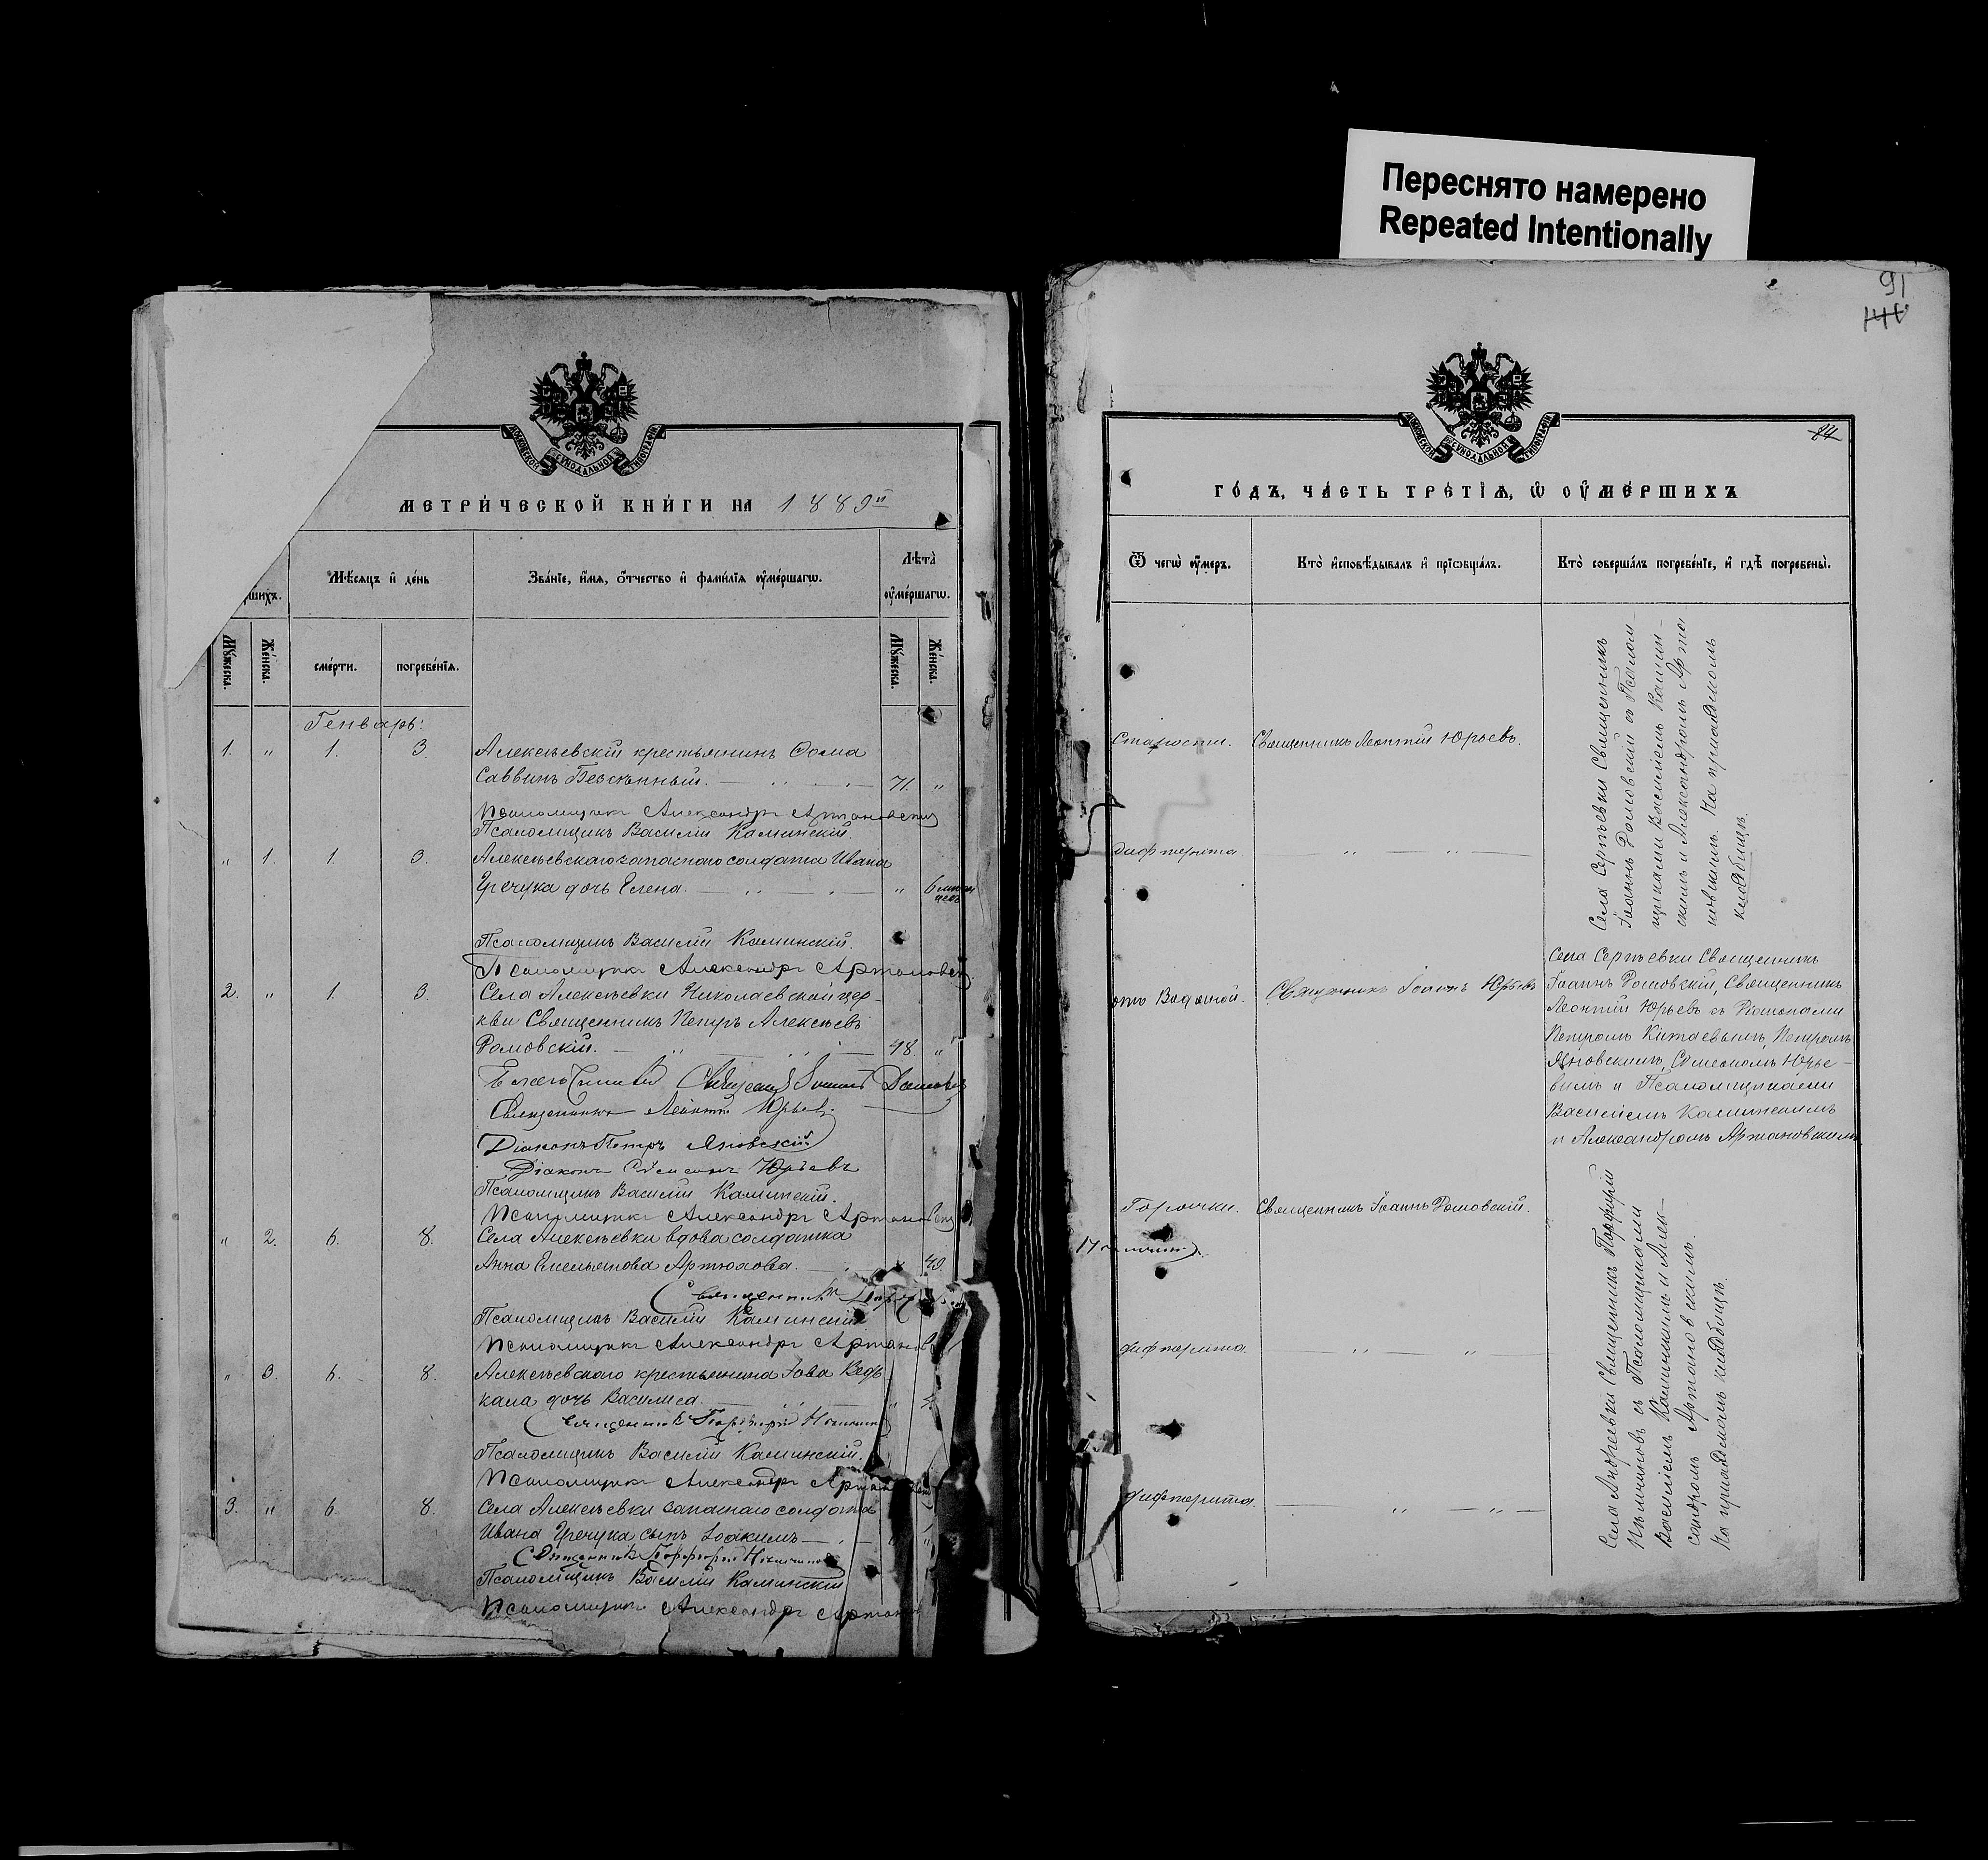 Переснято намерено
Repeated Intentionally
91
МЕТРИЧЕСКОЙ КНИГИ НА 1889й
шихъ.
Мѣсяцъ и день
Званіе, имя, отчество и фамилія оумершагѡ.
Лѣта
оумершагѡ.
Мужеска.
Женска.
смерти.
погребенія.
Мужеска.
Женска.
Генварь:
1. " 1. 3. Алексѣевскій крестьянинъ Ѳома
Саввинъ 71. "
Псаломщикъ Александръ Артановскій
Псаломщикъ Василій Каминскій.
" 1. 1. 3. Алексѣевскаго запаснаго солдата Ивана
Гречука дочь Елена. " 6
Псаломщикъ Василій Каминскій.
Псаломщикъ Александръ Артановскій
2. " 1. 3. Села Алексѣевки Николаевской цер-
кви Священникъ Петръ Алексѣевъ
48. "
Священникъ Леонтій Юрьев.
Діаконъ Петръ Яновскій
Діаконъ Сѵмеонъ Юрьевъ
Псаломщикъ Василій Каминскій.
Псаломщикъ Александръ Артановскій
" 2. 6. 8. Села Алексѣевки вдова солдатка
Анна Емельянова Артюхова. 49.
Псаломщикъ Василій Каминскій
Псаломщикъ Александръ Артанов
" 3. 6. 8. Алексѣевскаго крестьянина Іова
дочь Василиса.
Священникъ Порфирій
Псаломщикъ Василій Каминскій.
Псаломщикъ Александръ
3. " 6. 8. Села Алексѣевки запаснаго солдата
Ивана Гречука сынъ Іоакимъ
Священникъ Порфирій
Псаломщикъ Василій Каминскій
Псаломщикъ Александръ
ГОДЪ, ЧАСТЬ ТРЕТІЯ, Ѡ ОУМЕРШИХЪ
Ѿ чегѡ оумеръ.
Кто исповѣдывалъ и пріобщалъ.
Кто совершалъ погребеніе, и гдѣ погребены.
Старости. Священникъ Леонтій Юрьевъ.
Села Сергѣевки Священникъ
Іоаннъ съ Псалом
щиками Василіемъ Камин-
скимъ и Александромъ Арта
новскимъ. На приходскомъ
кладбищѣ.
дифтерита " "
отъ Водяной. Священникъ Іоаннъ Юрьевъ
Села Сергѣевки Священникъ
Іоаннъ Священникъ
Леонтій Юрьевъ съ Діаконами
Петромъ Китаевымъ, Петромъ
Яновскимъ, Сѵмеономъ Юрье-
вымъ и Псаломщиками
Василіемъ Каминскимъ
и Александромъ Артановскимъ.
Горячки. Священникъ Іоаннъ
дифтерита. " "
дифтерита. " "
Села Андреевки Священникъ Порфирій
съ Псаломщиками
Василіемъ Каминскимъ и Алек-
сандромъ Артановскимъ.
На приходскомъ кладбищѣ.